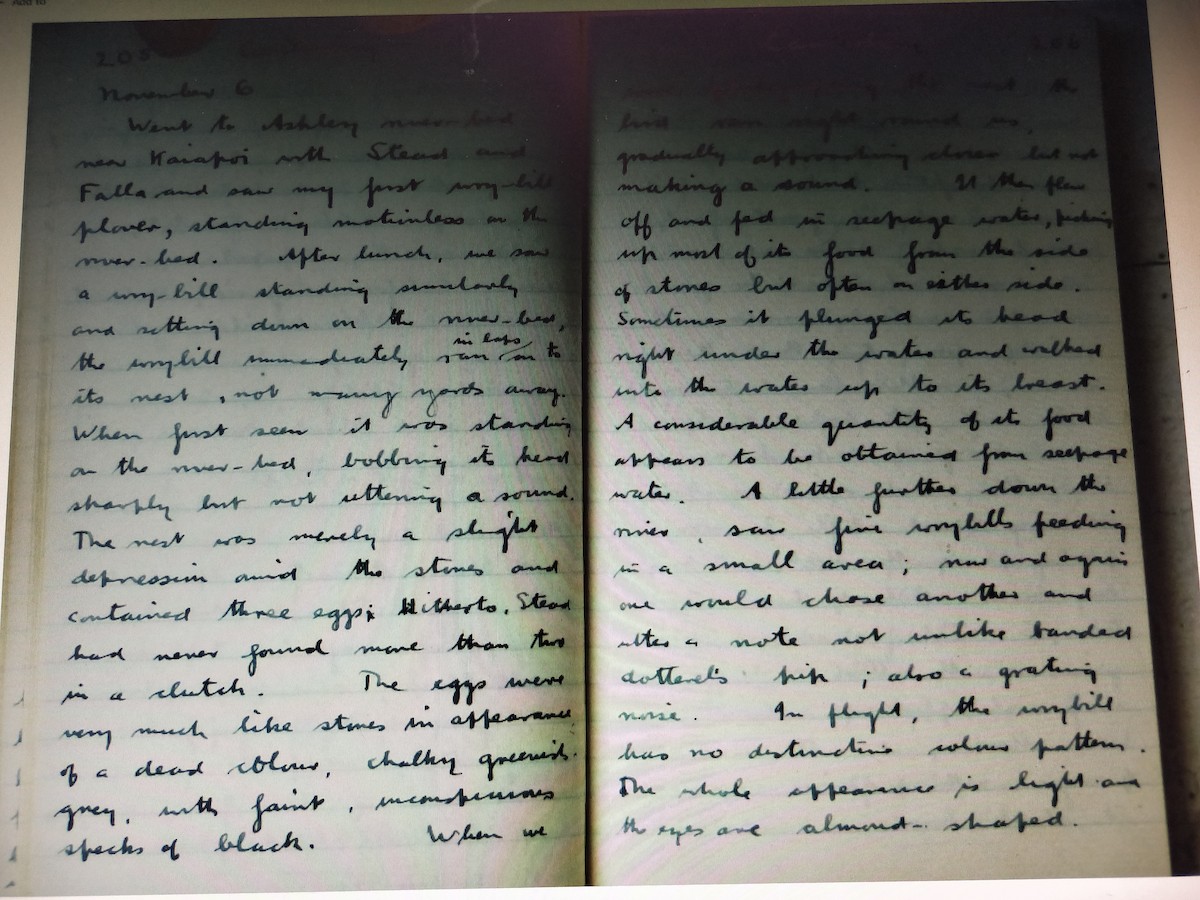 205
November 6
Went to Ashley river-bed
near Kaiapoi with Stead and
Falla and saw my first wry-bill
plover, standing motionless on the
river-bed. After lunch, we saw
a wry-bill standing similarly
and sitting down on the river-bed,
in laps
the wrybill immediately ran on to
its nest, not many yards away.
When first seen it was standing
on the river-bed, bobbing its head
sharply but not uttering a sound.
The nest was merely a slight
depression amid the stones and
contained three eggs; Hitherto, Stead
had never found more than two
in a clutch. The eggs were
very much like stones in appearance,
of a dead colour, chalky greenish-
grey, with faint, inconspicuous
specks of black. When we
206
the nest the
bird ran right round us,
gradually approaching closer but not
making a sound. It then flew
off and fed in seepage water, picking
up most of its food from the side
of stones but often on either side.
Sometimes it plunged its head
right under the water and walked
into the water up to its breast.
A considerable quantity of its food
appears to be obtained from seepage
water. A little further down the
river, saw five wrybills feeding
in a small area; now and again
one would chase another and
utter a note not unlike banded
dotterel's pip; also a grating
noise. In flight, the wrybill
has no distinctive colour pattern.
The whole appearance is light and
the eyes are almond-shaped.